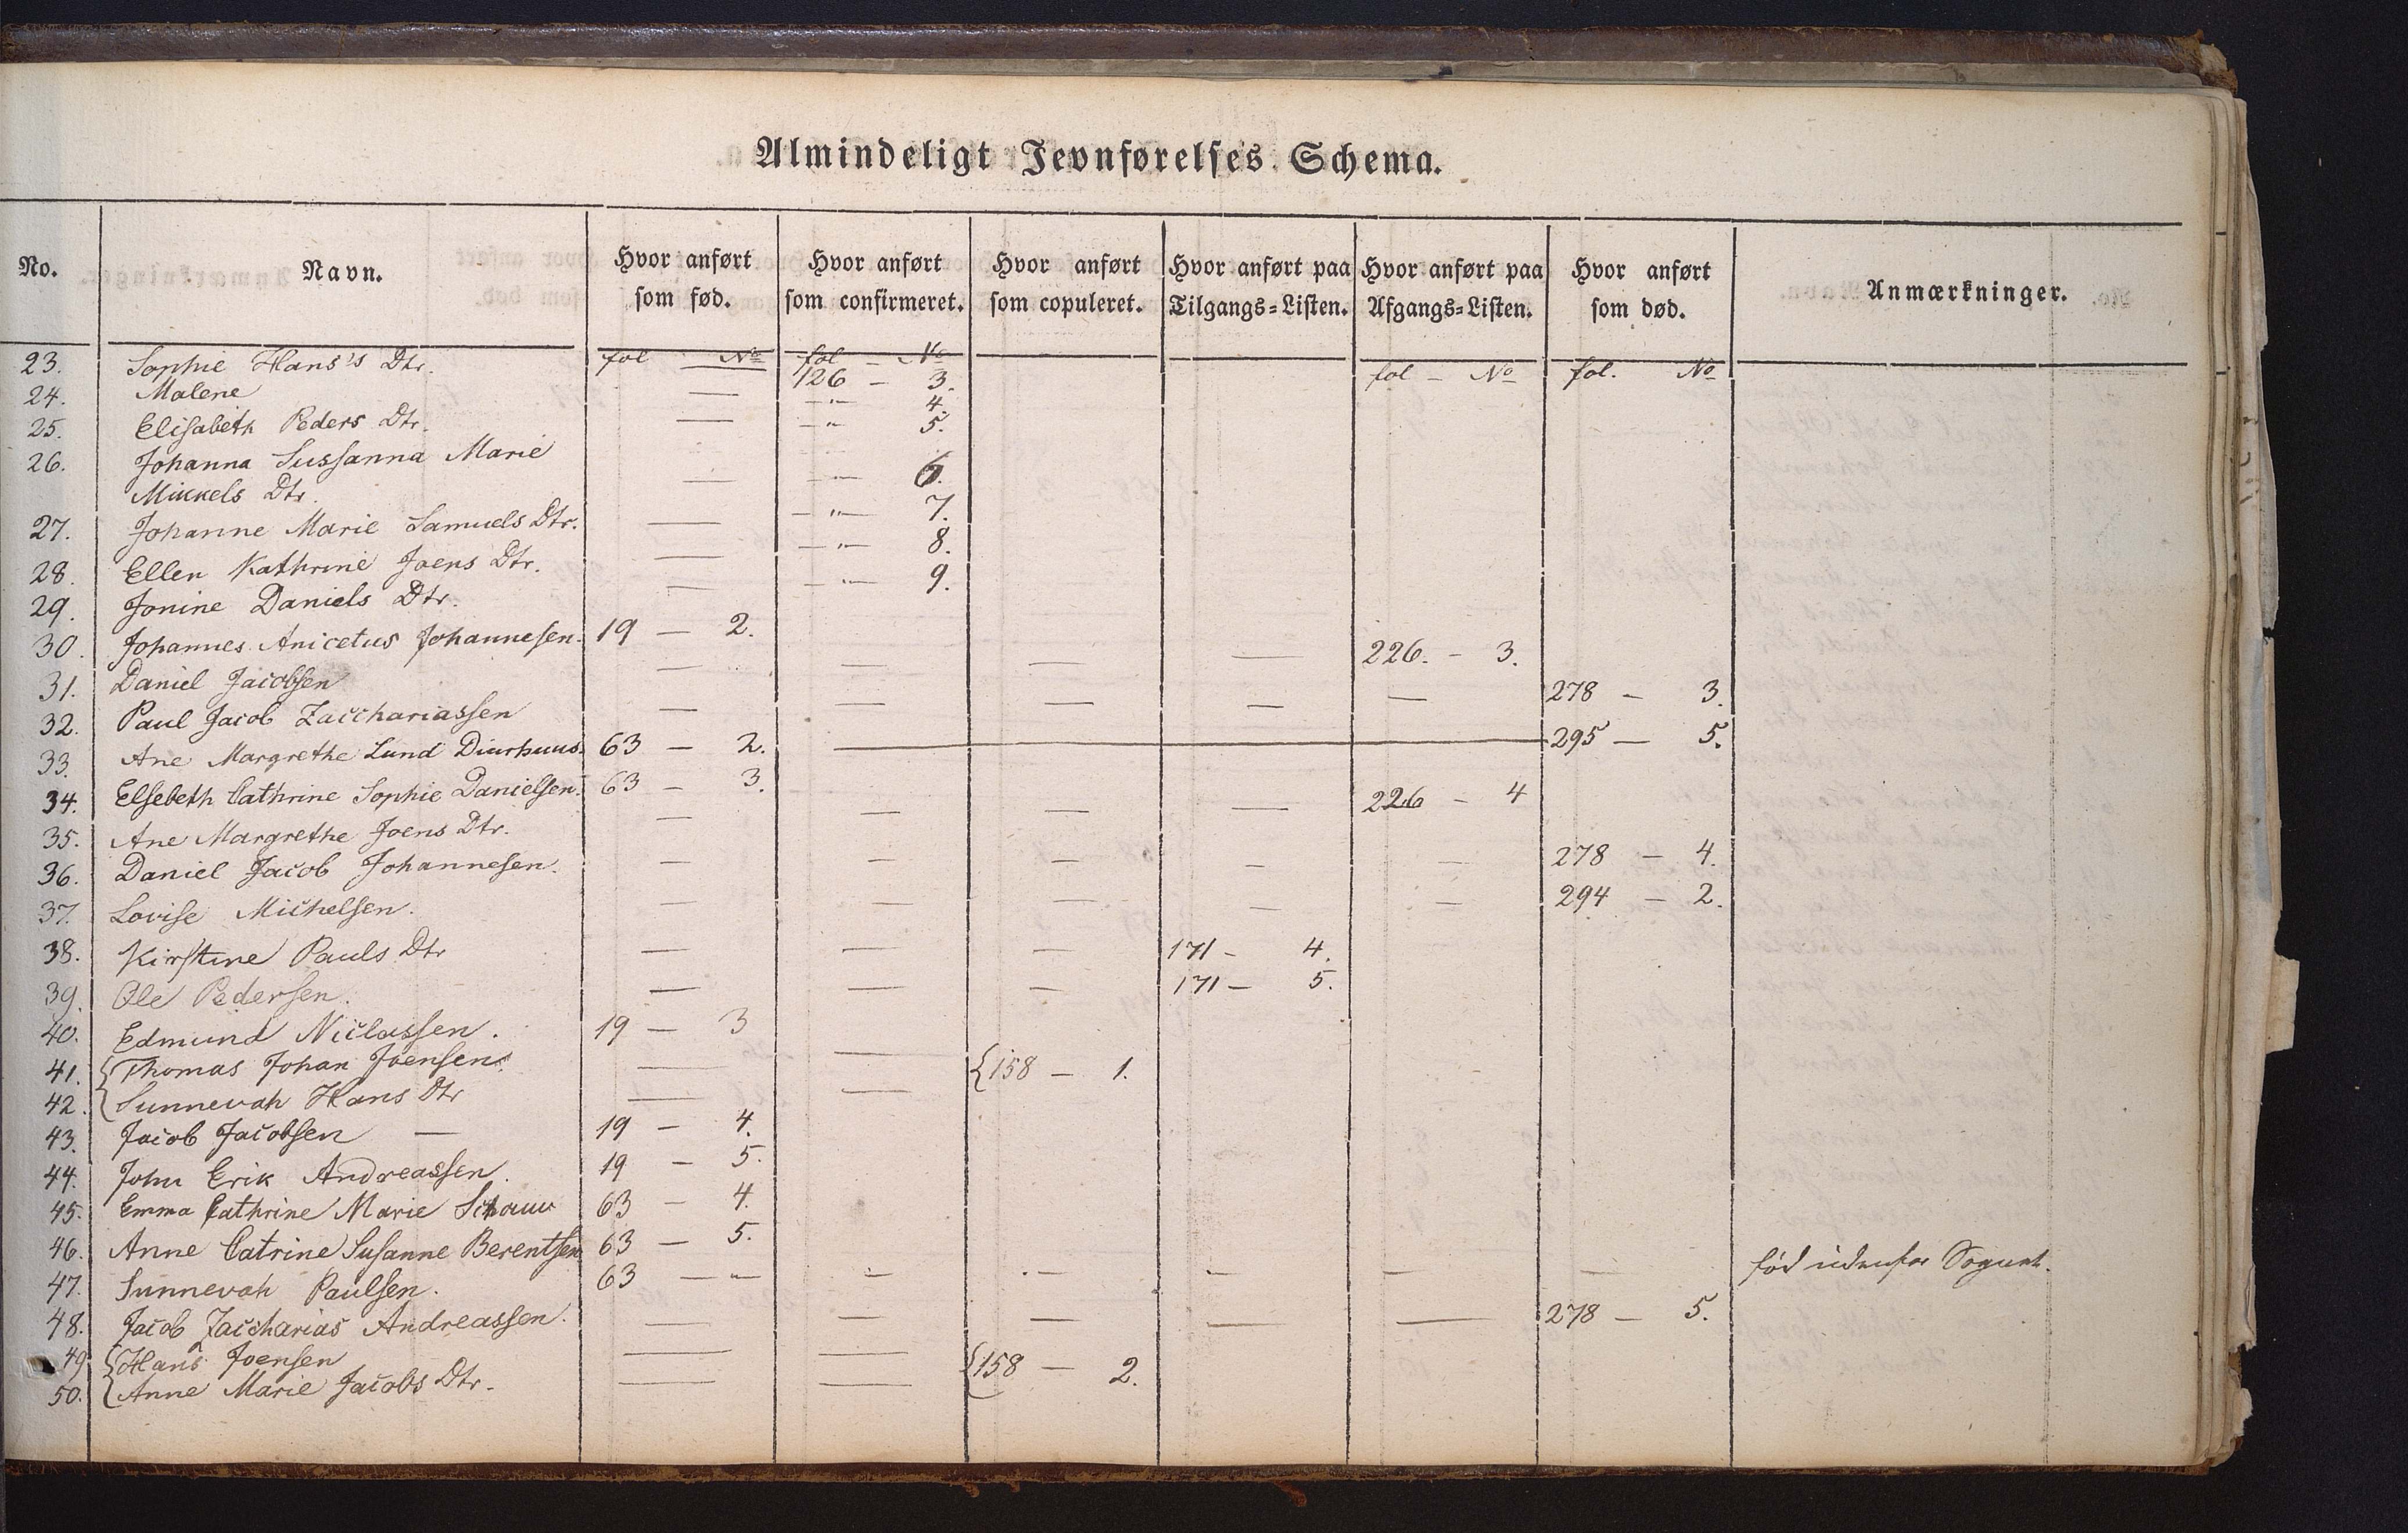 Almindeligt Jevnførelses-Schema.
No. Navn. Hvor anført som fød. Hvor anført som confirmeret. Hvor anført som copuleret. Hvor anført paa Tilgangs-Listen. Hvor anført paa Afgangs-Listen. Hvor anført som død. Anmærkninger.
fol No fol - No fol - No fol. No
23. Sophie Hans's Dtr. 126 - 3.
24. Malene — -"- 4.
25. Elisabeth Peders Dtr. — -"- 5.
26. Johanna Sussanna Marie
Mikkels Dtr. — -"- 6.
27. Johanne Marie Samuels Dtr. — -"- 7.
28. Ellen Kathrine Joens Dtr. — -"- 8.
29. Jonine Daniels Dtr. — -"- 9.
30. Johannes Anicetus Johannesen. 19 — 2.
31. Daniel Jacobsen — — — — 226. - 3.
32. Paul Jacob Zacchariassen — — — — — 278 - 3.
33. Ane Margrethe Lund Diurhuus. 63 — 2. — 295 — 5.
34. Elsebeth Cathrine Sophie Danielsen. 63 - 3.
35. Ane Margrethe Joens Dtr. — — — — 226 - 4
36. Daniel Jacob Johannesen. — — — — — 278 - 4.
37. Lovise Michelsen. — — — — — 294 - 2.
38. Kirstine Pauls Dtr — — — 171 - 4.
39. Ole Pedersen. — — — 171 - 5.
40. Edmund Niclassen. 19 — 3
41. Thomas Johan Joensen — — {158 — 1.
42. Sunnevah Hans Dtr — —
43. Jacob Jacobsen — 19 - 4.
44. John Erik Andreassen. 19 - 5.
45. Emma Cathrine Marie Schouw 63 - 4.
46. Anne Catrine Susanne Berentsen 63 - 5.
47. Sunnevah Paulsen. 63 — " — — — — — — fød udenfor Sognet.
48. Jacob Zaccharias Andreassen. — — — — — 278 — 5.
49. {Hans Joensen — — {158 — 2.
50. {Anne Marie Jacobs Dtr. — —